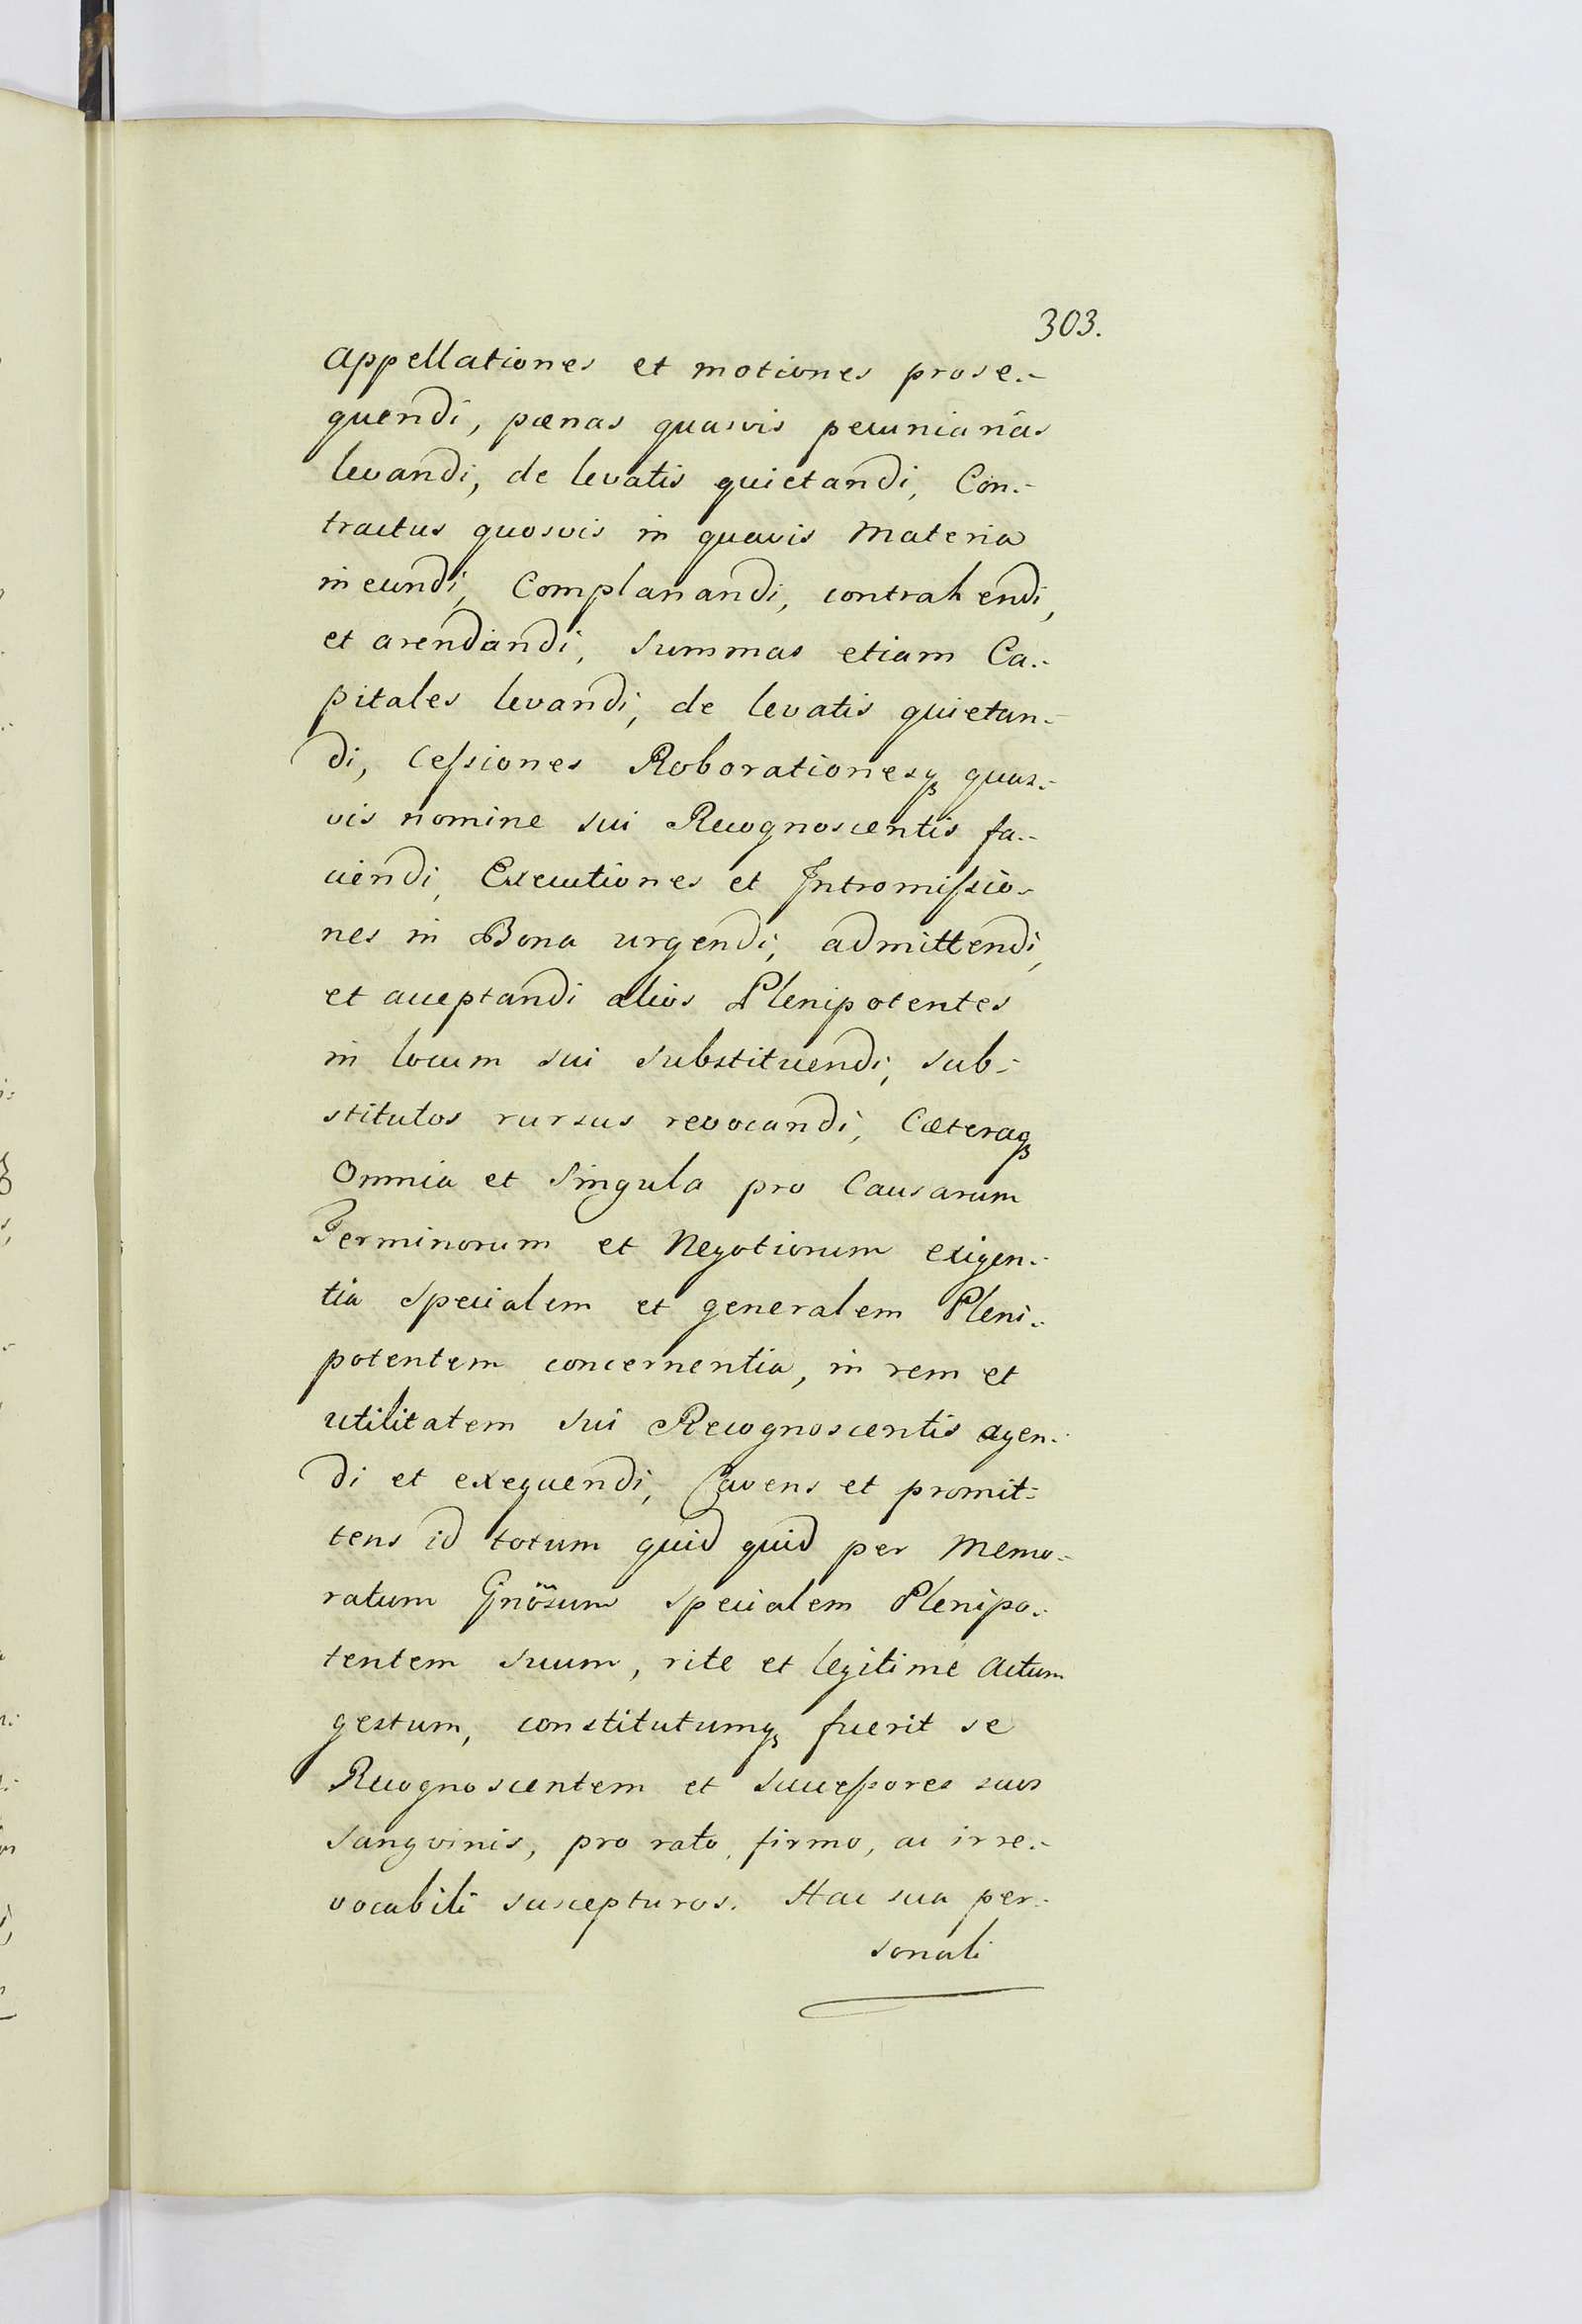 303.
appellationes et motiones prose.-
quendi, pœnas quasvis pecuniarias
levandi, de levatis quietandi, Con.-
tractus quosvis in quavis Materia
ineundi, Complanandi, contrahendi,
et arendandi, summas etiam Ca.-
pitales levandi, de levatis quietan.-
di, Cessiones Roborationesq quas.-
vis nomine sui Recognoscentis fa.-
ciendi, Executiones et Intromissio-
nes in Bona urgendi, admittendi,
et acceptandi alios Plenipotentes
in locum sui substituendi, sub.-
stitutos rursus revocandi, Cæteraq
Omnia et Singula pro Causarum
Terminorum et Negotiorum exigen.-
tia specialem et generalem Pleni.-
potentem concernentia, in rem et
utilitatem sui Recognoscentis agen.-
di et exequendi, Cavens et promit.-
tens id totum quid quid per Memo.-
ratum Gnösum specialem Plenipo.-
tentem suum, rite et legitime actum
gestum, constitutumq fuerit se
Recognoscentem et Successores suos
sangvinis, pro rato, firmo, ac irre.-
vocabili suscepturos. Hac sua per.-
sonali